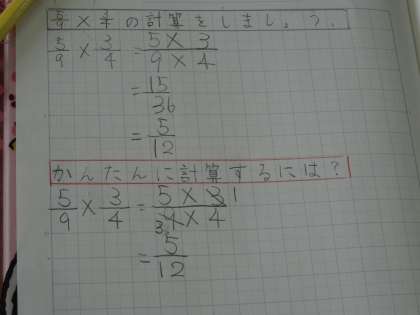 5/9 × 3/4 の計算をしましょう.
5/9 × 3/4 = 5×3/9×4
= 15/36
= 5/12
かんたんに計算するには?
5/9 × 3/4 = 5×3/9×4 1 3
= 5/12